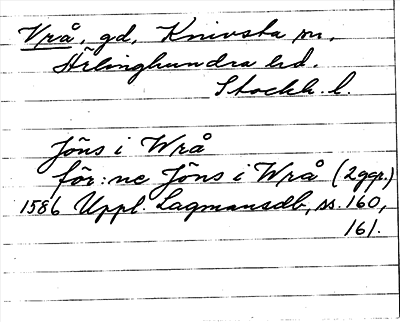 Vrå, gd, Knivsta sn,
Ärlinghundra hd.
Stockh. l.
Jöns i Wrå
för:ne Jöns i Wrå (2ggr.)
1586 Uppl. Lagmansdb, ss. 160,
161.